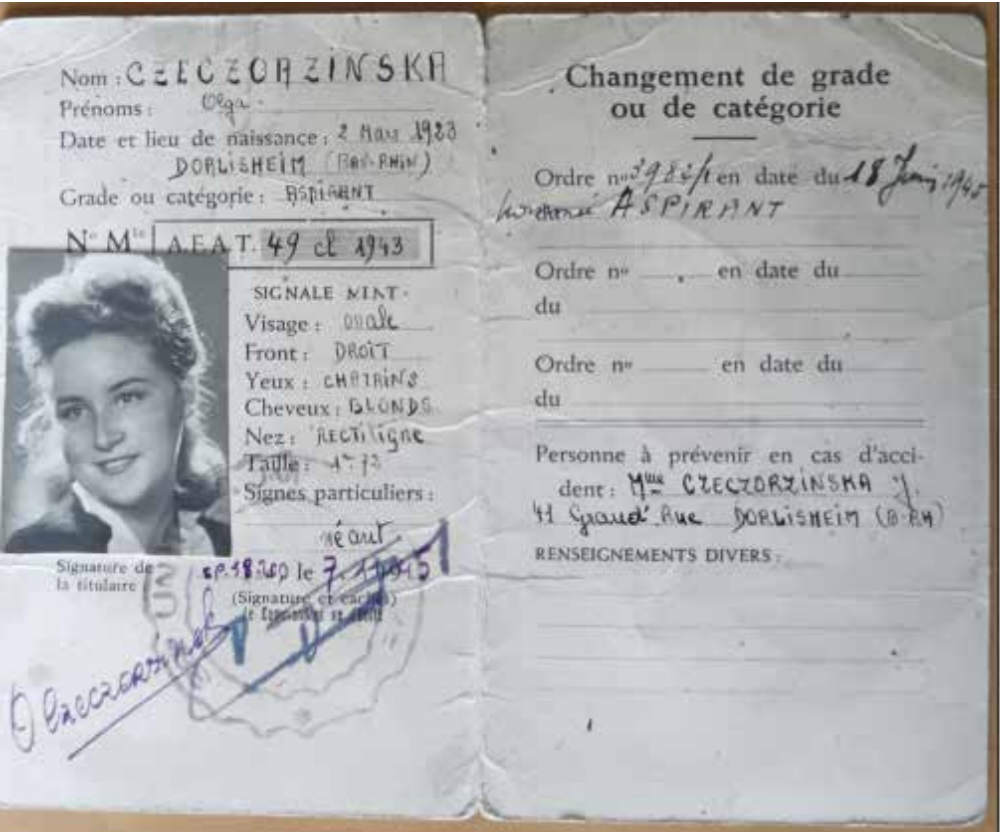 Nom : CZECZORZINSKA
Prénoms : Olga
Date et lieu de naissance : 2 Mars 1923
DORLISHEIM (BAS-RHIN)
Grade ou catégorie : ASPIRANT
N° Mle A.F.A.T. 49 cl 1943
SIGNALEMENT
Visage : ovale
Front : DROIT
Yeux : CHATAINS
Cheveux : BLONDS
Nez : RECTILIGNE
Taille : 1m 73
Signes particuliers :
néant
Signature de
la titulaire
S.P. le 7. 1945
(Signature et cachet)
O Czeczorzinska
Changement de grade
ou de catégorie
Ordre n° en date du 18 Juin 1945
ASPIRANT
Ordre n° en date du
du
Ordre n° en date du
du
Personne à prévenir en cas d'acci-
dent : Mme CZECZORZINSKA J.
41 Grand' Rue DORLISHEIM (B-RH)
RENSEIGNEMENTS DIVERS :